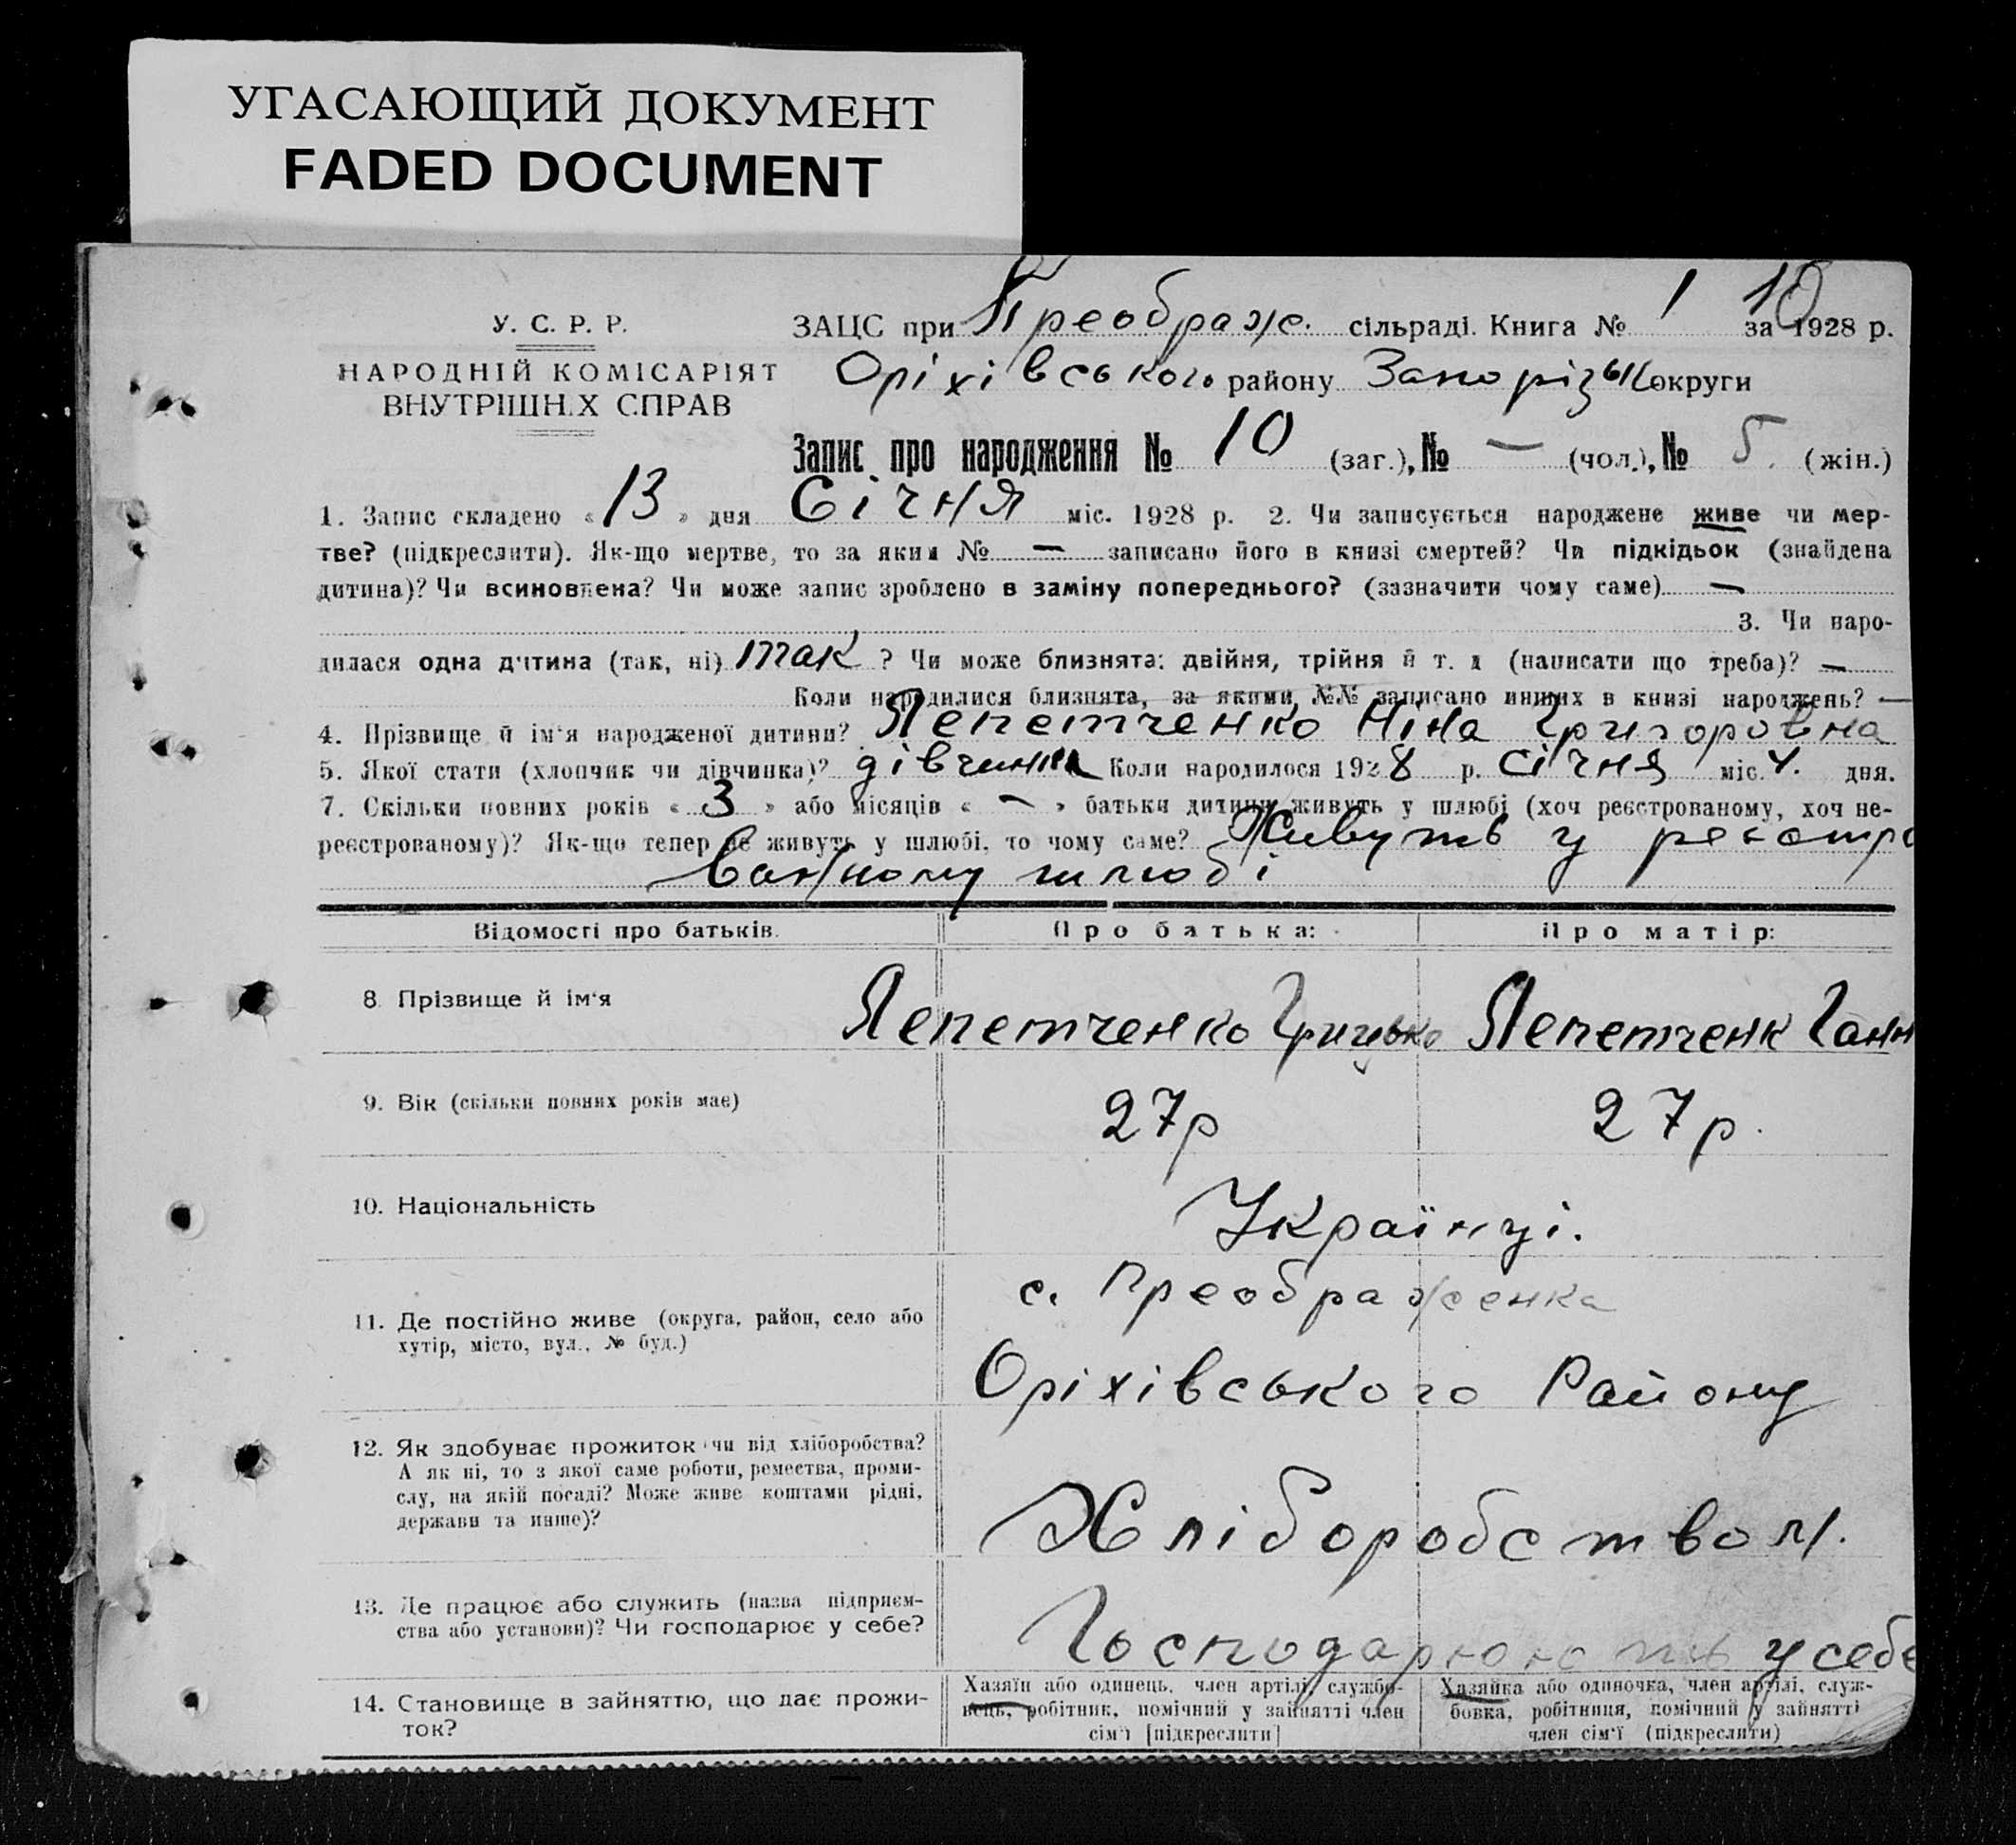 УГАСАЮЩИЙ ДОКУМЕНТ
FADED DOCUMENT
10
У. С. Р. Р.
НАРОДНІЙ КОМІСАРІЯТ
ВНУТРІШНІХ СПРАВ
ЗАЦС при Преображ. сільраді. Книга № 1 за 1928 р.
Оріхівського району Запорізьк округи
Запис про народження № 10 (заг.), № — (чол.), № 5. (жін.)
1. Запис складено « 13 » дня Січня міс. 1928 р. 2. Чи записується народжене живе чи мер-
тве? (підкреслити). Як-що мертве, то за яким № — записано його в книзі смертей? Чи підкідьок (знайдена
дитина)? Чи всиновлена? Чи може запис зроблено в заміну попереднього? (зазначити чому саме) —
3. Чи наро-
дилася одна дитина (так, ні) так ? Чи може близнята: двійня, трійня й т. д (написати що треба)? —
Коли народилися близнята, за якими №№ записано инших в книзі народжень? —
4. Прізвище й ім'я народженої дитини? Лепетченко Ніна Григоровна
5. Якої стати (хлопчик чи дівчинка)? дівчинка Коли народилося 1928 р. січня міс. 4. дня.
7. Скільки повних років « 3 » або місяців « — » батьки дитини живуть у шлюбі (хоч реєстрованому, хоч не-
реєстрованому)? Як-що тепер не живуть у шлюбі, то чому саме? Живуть у
шлюбі
Відомості про батьків. Про батька: Про матір:
8. Прізвище й ім'я Лепетченко Грицько Лепетченк Ганн
9. Вік (скільки повних років має) 27р 27р.
10. Національність Українці.
11. Де постійно живе (округа, район, село або
хутір, місто, вул., № буд.)
с. Преображенка
Оріхівського Району
12. Як здобуває прожиток чи від хліборобства?
А як ні, то з якої саме роботи, ремества, проми-
слу, на якій посаді? Може живе коштами рідні,
держави та инше)?
Хліборобством.
13. Де працює або служить (назва підприєм-
ства або установи)? Чи господарює у себе?
Господарюють у себе
14. Становище в зайняттю, що дає прожи-
ток?
Хазяїн або одинець, член артілі, службо-
вець, робітник, помічний у зайнятті член
сім'ї [підкреслити]
Хазяйка або одиночка, член артілі, служ-
бовка, робітниця, помічний у зайнятті
член сім'ї (підкреслити)